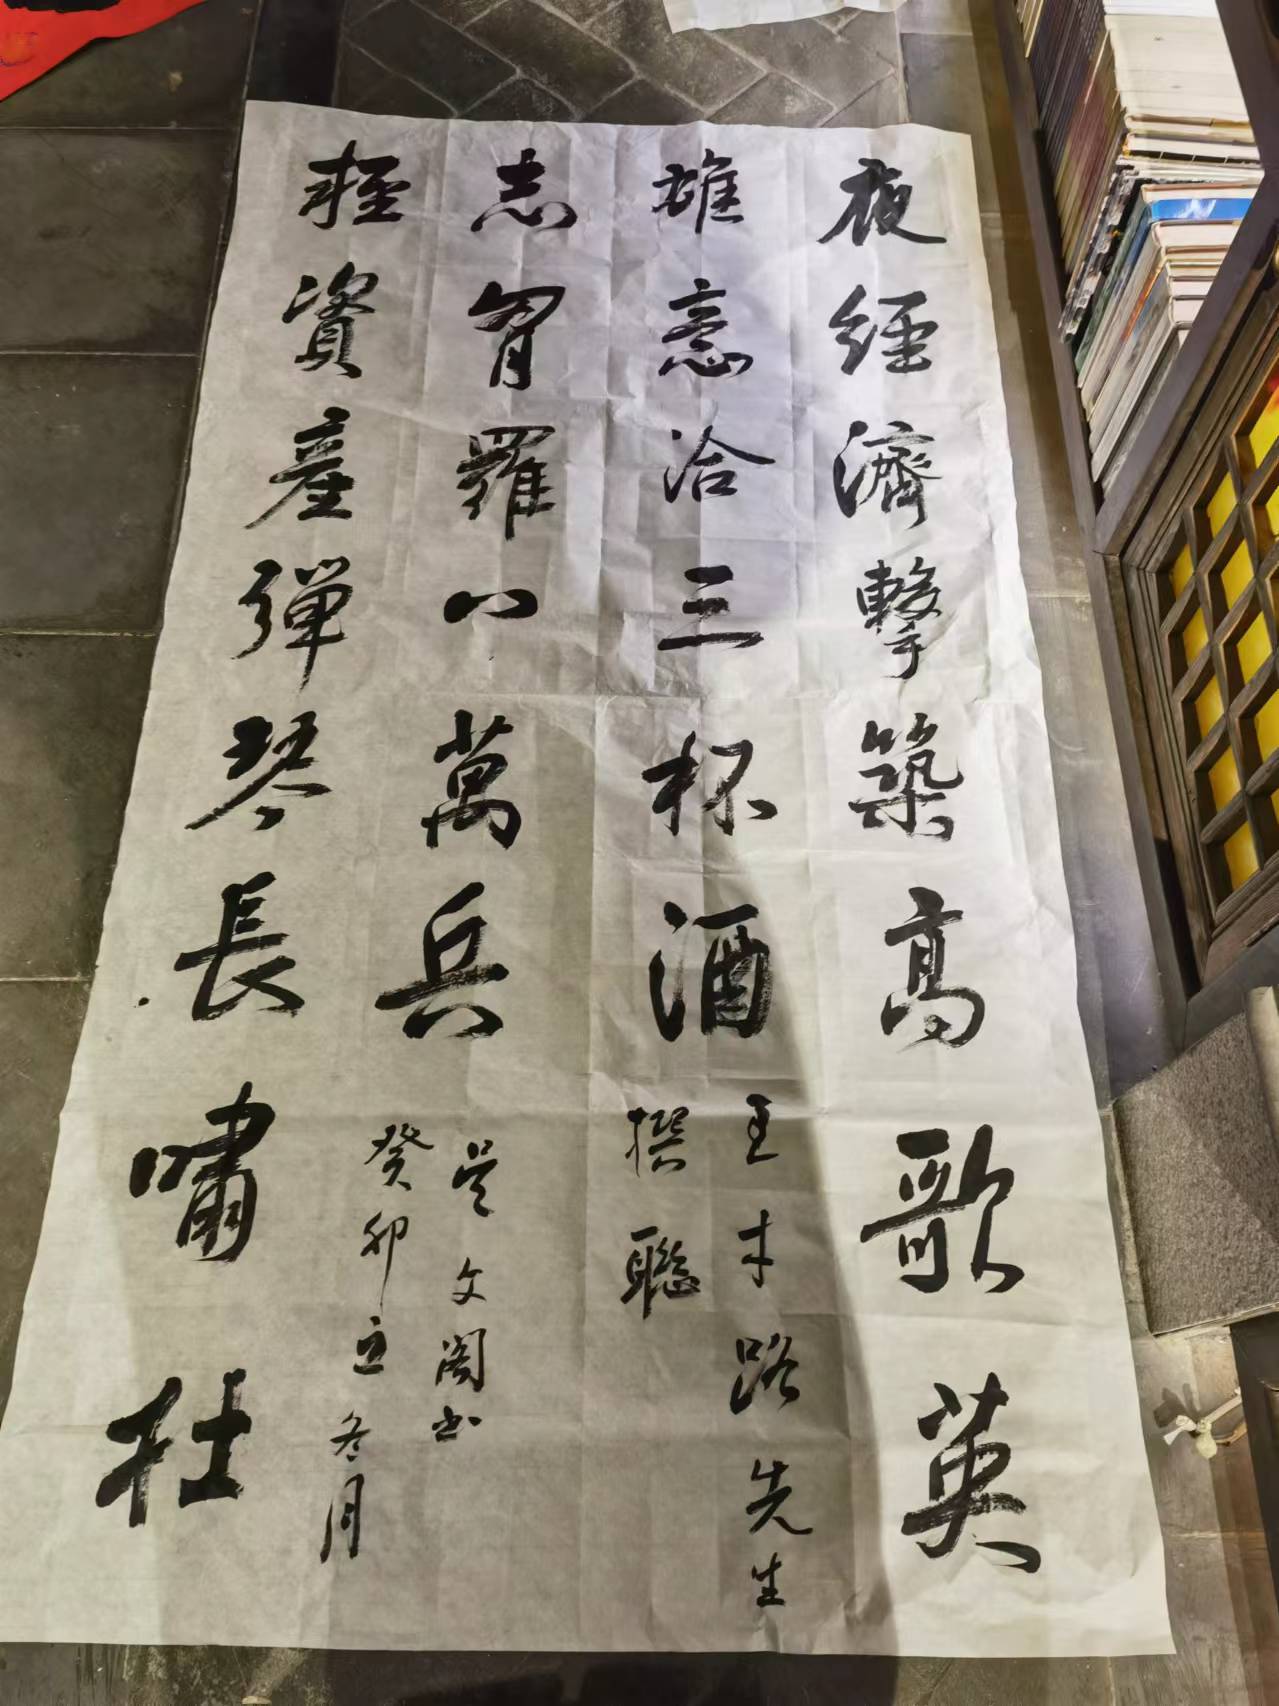 夜經濟擊築高歌英
雄意洽三杯酒
王才路先生
撰聯
輕資產彈琴長嘯壯
志胷羅八萬兵
吴文閣书
癸卯立冬月